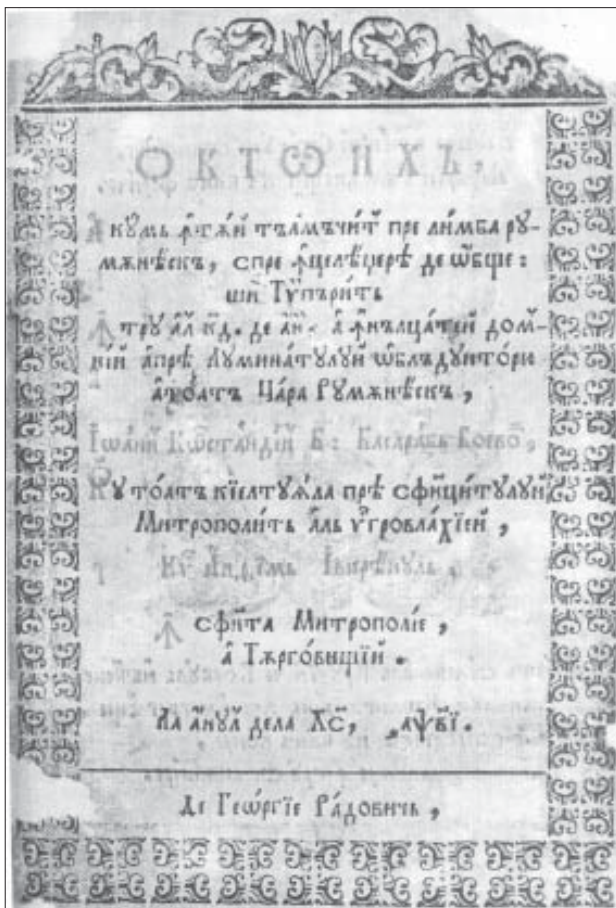 ОКТѠИХЪ,
Акумь ꙟтѫй тълмъчит пре лимба ру-
мѫнѣскъ, спре ꙟцелѣџерѣ де ѡбще:
ши Тѵпъритъ
Ꙟтру ал к҃д. де ани а ꙟнълцатей дом-
нїй а прѣ Луминатулуй ѡблъдуиторю
а тоатъ Цара Румѫнѣскъ,
Іѡанн Кѡстандин Б: Басарабъ Воевод,
Ку тоатъ киелтуѧла прѣ сфинцитулуй
Митрополитъ аль Угровлахїей,
Кѵр Анѳимъ Ивирѣнуль,
Ꙟ сфнта Митрополїе,
а Тѫрговищїй.
Ла анул дела Хс, ҂аѱві.
Де Геѡргїе Радовичь,